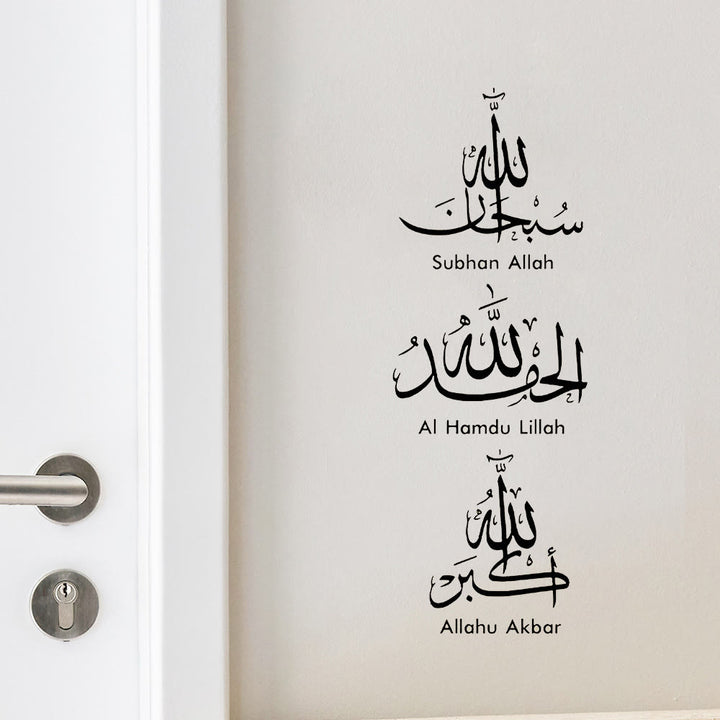 سُبْحَانَ اللّٰه
Subhan Allah
الحَمْدُ لِلّٰه
Al Hamdu Lillah
اللّٰه أَكْبَرْ
Allahu Akbar